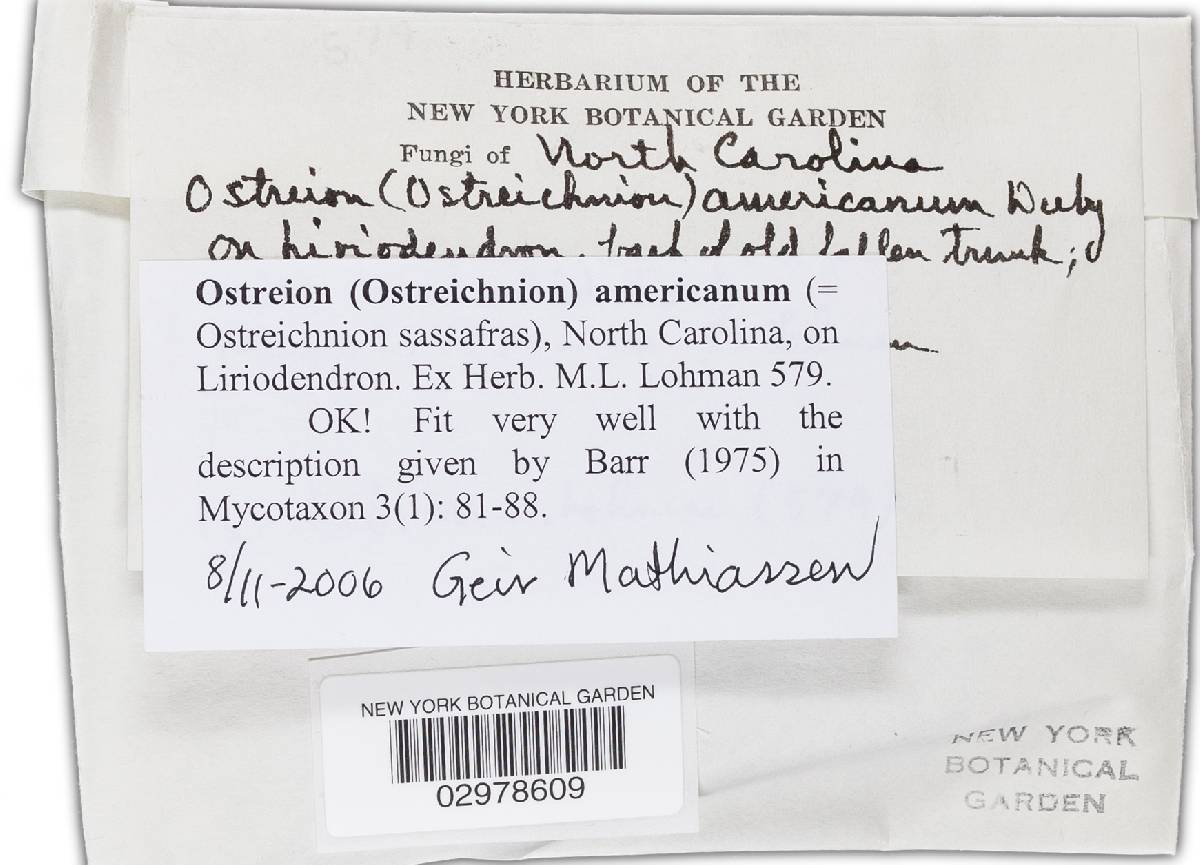 HERBARIUM OF THE
NEW YORK BOTANICAL GARDEN
Fungi of North Carolina
Ostreion (Ostreichnion) americanum Duby
on Liriodendron, bark of old fallen trunk;
Ostreion (Ostreichnion) americanum (=
Ostreichnion sassafras), North Carolina, on
Liriodendron. Ex Herb. M.L. Lohman 579.
OK! Fit very well with the
description given by Barr (1975) in
Mycotaxon 3(1): 81-88.
8/11-2006 Geir Mathiassen
NEW YORK BOTANICAL GARDEN
02978609
NEW YORK
BOTANICAL
GARDEN